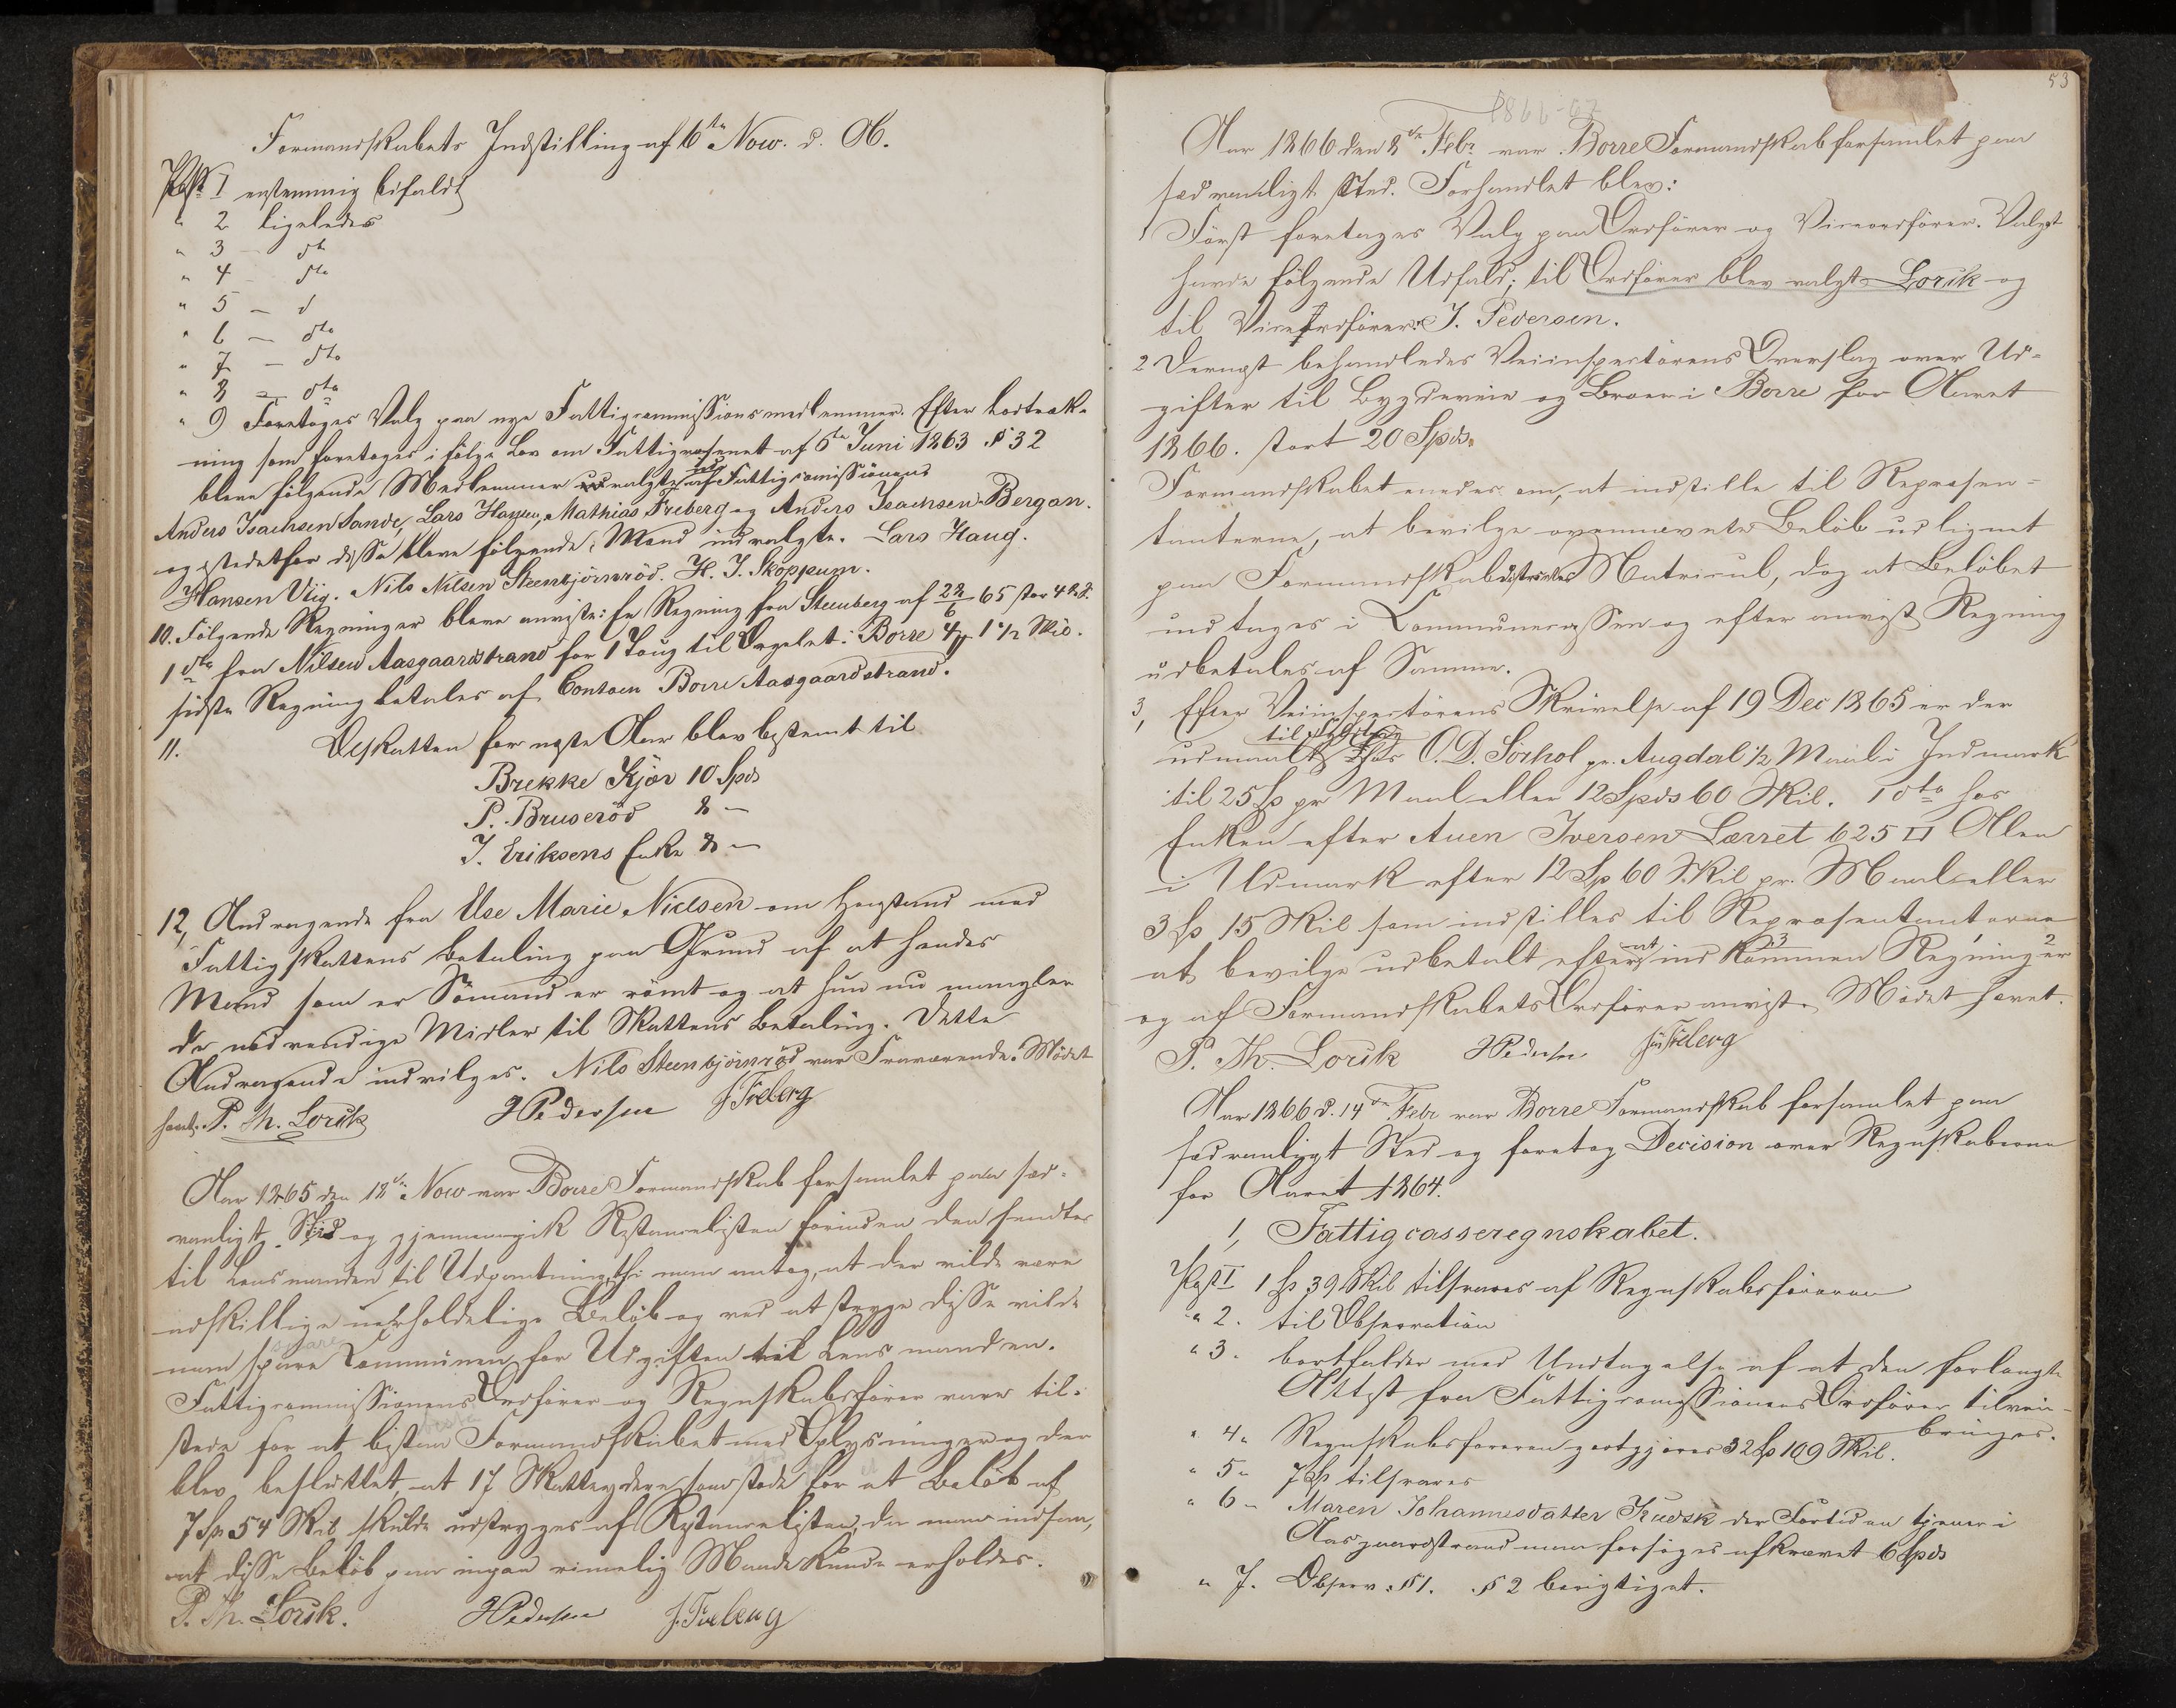 Formandskabets Indstilling af 6te Nov. d. A.
Post 1 enstemmig bifaldt
" 2 ligeledes
" 3 - dt
" 4 - dto
" 5 - d
" 6 - dto
" 7 - dto
" 8 - dto
" 9 Foretoges Valg paa nye Fattigcommissionsmedlemmer. Efter Lodtræk-
ning som foretoges i følge Lov om Fattigvæsenet af 6te Juni 1863 § 32
bleve følgende Medlemmer udvalgte af Fattigcomissionen
Anders Isachsen Sande, Lars Hansen, Mathias Freberg og Anders Isachsen Bergan.
og istedetfor disse bleve følgende Mænd indvalgte. Lars Haug.
Hansen Viig. Nils Nilsen Steenbjörnröd. H. J. Skoppum.
10. Følgende Regninger bleve anviste: En Regning fra Steenberg af 22/6 65 stor
1 dto fra Nilsen Aasgaardstrand for 1 Toug til Orgelet i Borre 4 1 1/2 Skil.
sidste Regning betales af Contoen Borre Aasgaardstrand.
11. Ølskatten for næste Aar blev bestemt til
Brekke Kjær 10 Spds
P. Bruseröd 8 -
J. Eriksens Enke 8 -
12, Andragende fra Else Marie Nielsen om Henstand med
Fattigskattens Betaling paa Grund af at hendes
Mand som er Sömand er römt og at hun nu mangler
de nødvendige Midler til Skattens Betaling. Dette
Andragende indvilges. Nils Steenbjörnröd var Fraværende. Mödet
hævt. P. Th. Lorck HPedersen J. Freberg
Aar 1865 den 18de Nov var Borre Formandskab forsamlet paa sæd-
vanligt Sted og gjennemgik Restancelisten forinden den sendtes
til Lensmanden til Udpantning, thi man antog, at der vilde være
adskillige uerholdelige Beløb og ved at stryge disse vilde
man spare Communen for Udgiften til Lensmanden.
Fattigcommissionens Ordfører og Regnskabsfører vare til-
stede for at bistaa Formandskabet med Oplysninger og der
blev besluttet, at 17 Skatteydere som stode for et Beløb af
7 Sp 54 Skil skulde udstryges af Restancelisten, da man indsaa,
at disse Beløb paa ingen rimelig Maade kunde erholdes.
P. Th. Lorck. HPedersen J. Freberg
53
1866-67
Aar 1866 den 8de Febr. var Borre Formandskab forsamlet paa
sædvanligt Sted. Forhandlet blev:
1 Först foretoges Valg paa Ordfører og Viceordfører. Valget
havde følgende Udfald; til Ordfører blev valgt Lorck og
til Viceordfører: J. Pedersen.
2 Dernæst behandledes Veiinspectørens Overslag over Ud-
gifter til Bygdeveie og Broer i Borre for Aaret
1866. stort 20 Spds.
Formandskabet enedes om, at indstille til Repræsen-
tanterne, at bevilge ovennævnte Beløb udlignet
paa Formandskabdistrictets Matricul, dog at Beløbet
indtages i Communecassen og efter anvist Regning
udbetales af Samme.
3, Efter Veiinspectørens Skrivelse af 19 Dec 1865 er der
til
udmaalt hos O. D. Sörhol pr. Augdal 1/2 Maal i Indmark
til 25 Sp pr Maal eller 12 Spds 60 Skil. 1 dto hos
Enken efter Auen Iversen Lærret 625 □ Alen
i Udmark efter 12 Sp 60 Skil pr. Maal eller
3 Sp 15 Skil som indstilles til Repræsentanterne
at bevilge udbetalt efter at indkommen Regninger
og af Formandskabets Ordfører anvist. Mödet hævet.
P. Th. Lorck HPedersen J. Freberg
Aar 1866 d. 14de Febr var Borre Formandskab forsamlet paa
sædvanligt Sted og foretog Decision over Regnskaberne
for Aaret 1864.
1, Fattigcasseregnskabet.
Post 1 1 Sp 39 Skil tilsvares af Regnskabsføreren
" 2. til Observation
" 3. bortfalder med Undtagelse af at den forlangte
Attest fra Fattigcomissionens Ordfører tilveie-
bringes.
" 4. Regnskabsføreren godtgjøres 32 Sp 109 Skil.
" 5. 7 Sp tilsvares
" 6. Maren Johannesdatter Kudsk der Fortiden tjener i
Aasgaardstrand maa forsøges afkrævet 6 Spds
" 7. Observ. § 1. § 2 berigtiget.